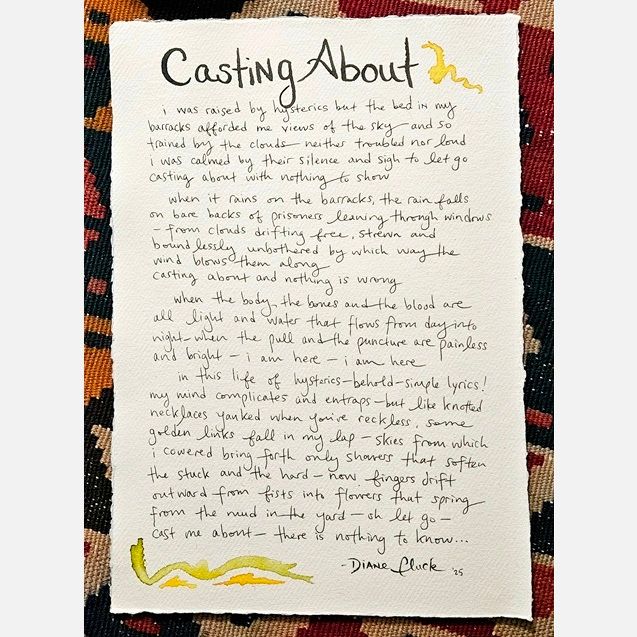 Casting About
i was raised by hysterics but the bed in my
barracks afforded me views of the sky and so
trained by the clouds neither troubled nor loud
i was calmed by their silence and sigh to let go
casting about with nothing to show
when it rains on the barracks, the rain falls
on bare backs of prisoners leaning through windows
- from clouds drifting free, strewn and
boundlessly unbothered by which way the
wind blows them along
casting about and nothing is wrong
when the body, the bones and the blood are
all light and water that flows from day into
night - when the pull and the puncture are painless
and bright - i am here - i am here
in this life of hysterics - behold - simple lyrics!
my mind complicates and entraps - but like knotted
necklaces yanked when you're reckless, some
golden links fall in my lap - skies from which
i cowered bring forth only showers that soften
the stuck and the hard - now fingers drift
outward from fists into flowers that spring
from the mud in the yard - oh let go -
cast me about - there is nothing to know...
- Diane Cluck '25